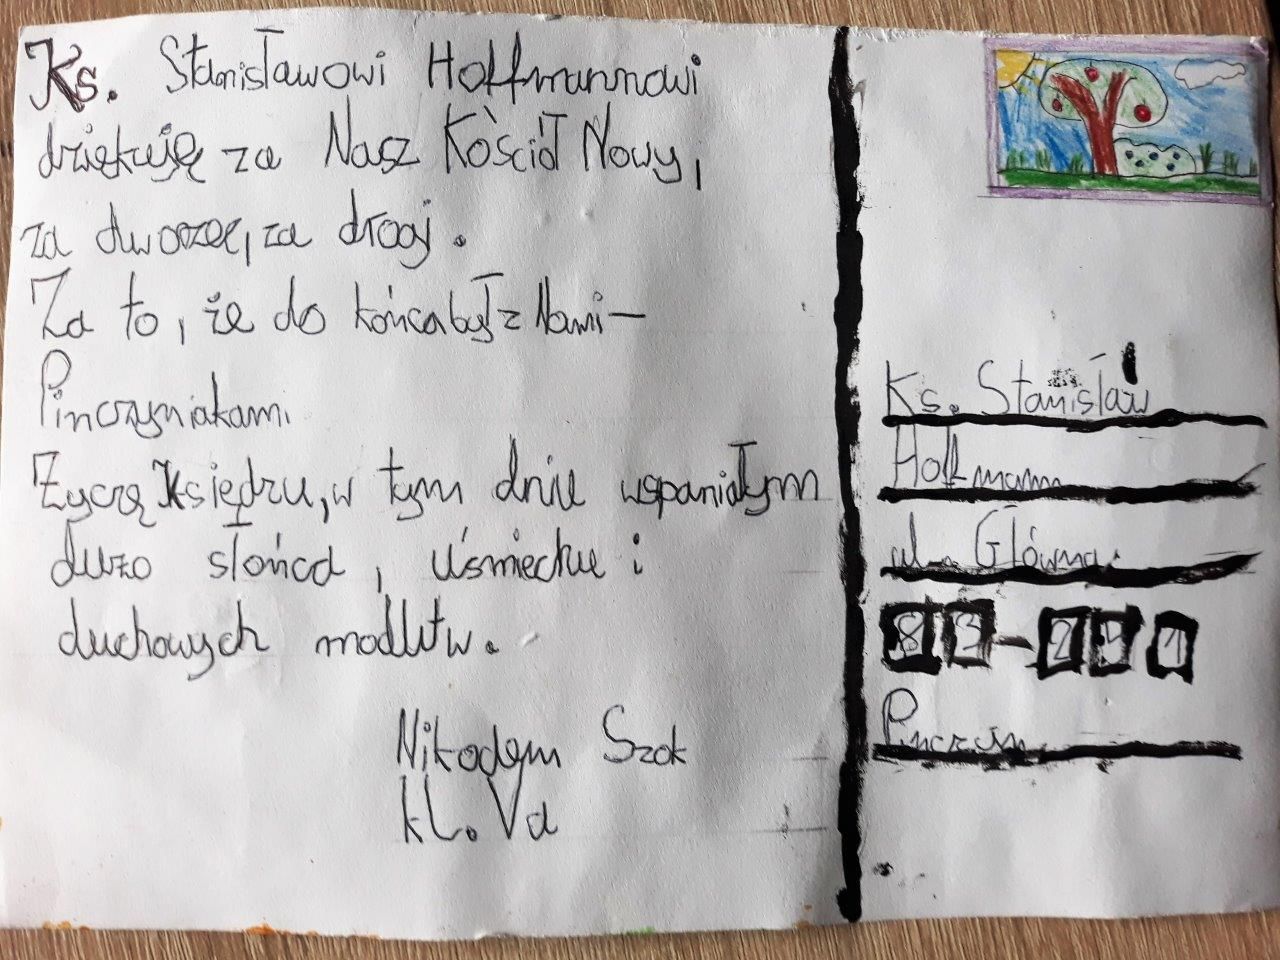 Ks. Stanisławowi Hoffmannowi
dziękuję za Nasz Kościół Nowy,
za dworzec, za drogi.
Za to, że do końca był z Nami–
Pinczyniakami.
Życzę Księdzu, w tym dniu wspaniałym
dużo słońca, uśmiechu i
duchowych modlitw.
Nikodem Szok
kl. Va
Ks. Stanisław
Hoffmann
ul. Główna
83-251
Pinczyn